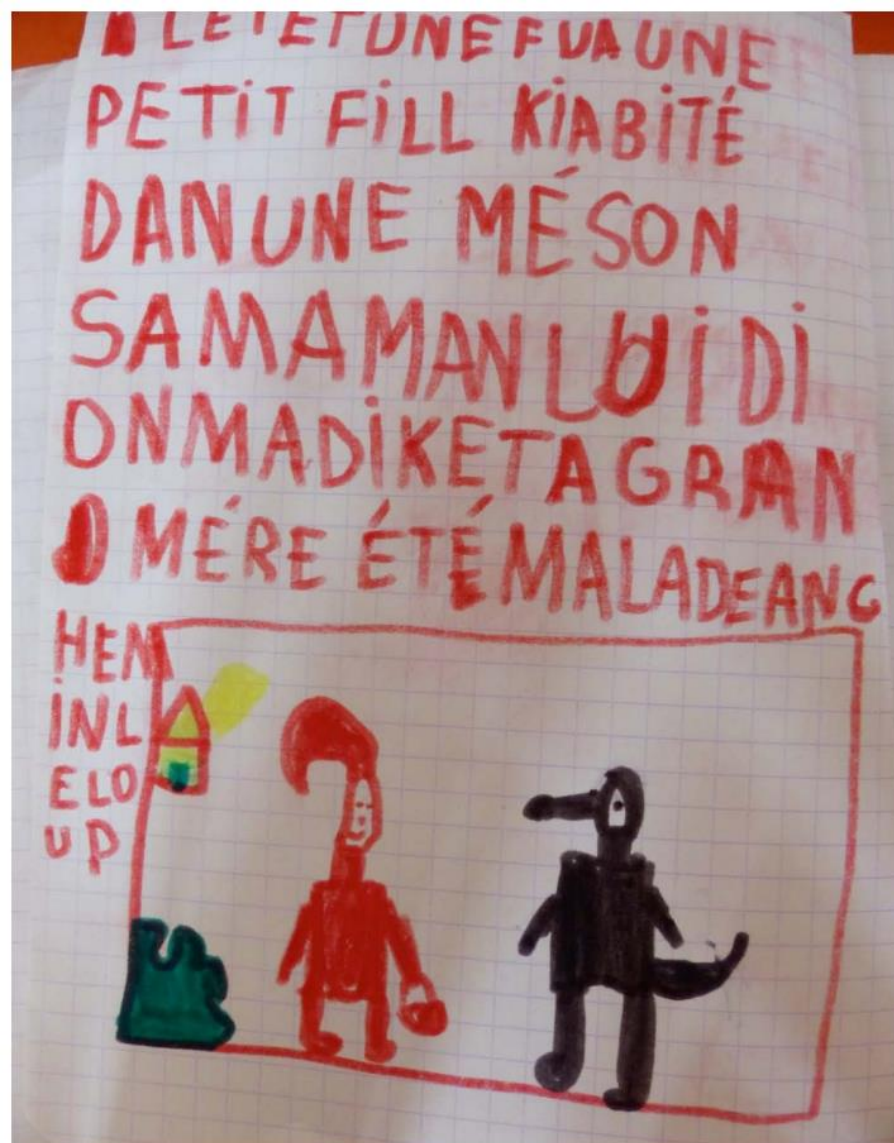 LETÉTUNEFUAUNE
PETIT FILL KIABITÉ
DANUNE MÉSON
SAMAMANLUIDI
ONMADIKETAGRAN
MÉRE ÉTÉMALADEANG
HEM
INL
ELO
UP